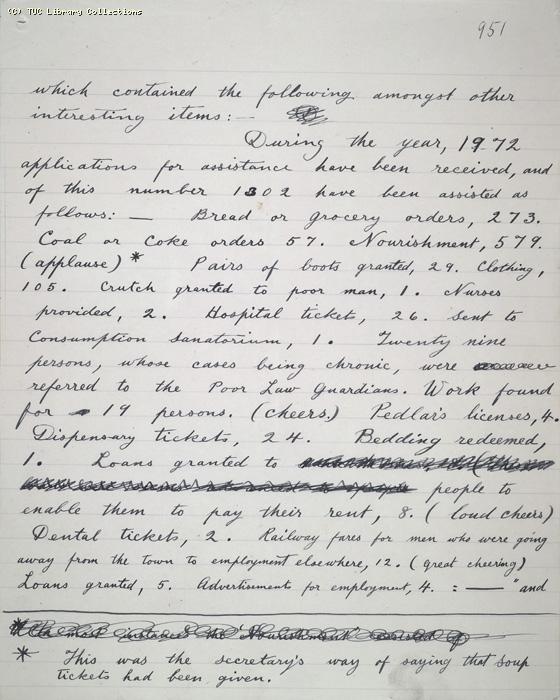 (C) TUC Library Collections
951
which contained the following amongst other
interesting items: —
During the year, 1972
applications for assistance have been received, and
of this number 1302 have been assisted as
follows: — Bread or grocery orders, 273.
Coal or Coke orders 57. Nourishment, 579.
(applause) * Pairs of boots granted, 29. Clothing,
105. Crutch granted to poor man, 1. Nurses
provided, 2. Hospital tickets, 26. Sent to
Consumption Sanatorium, 1. Twenty nine
persons, whose cases being chronic, were
referred to the Poor Law Guardians. Work found
for 19 persons. (cheers.) Pedlar's licenses, 4.
Dispensary tickets, 24. Bedding redeemed,
1. Loans granted to
people to
enable them to pay their rent, 8. (loud cheers)
Dental tickets, 2. Railway fares for men who were going
away from the town to employment elsewhere, 12. (great cheering)
Loans granted, 5. Advertisements for employment, 4. : — "and
* This was the secretary's way of saying that soup
tickets had been given.